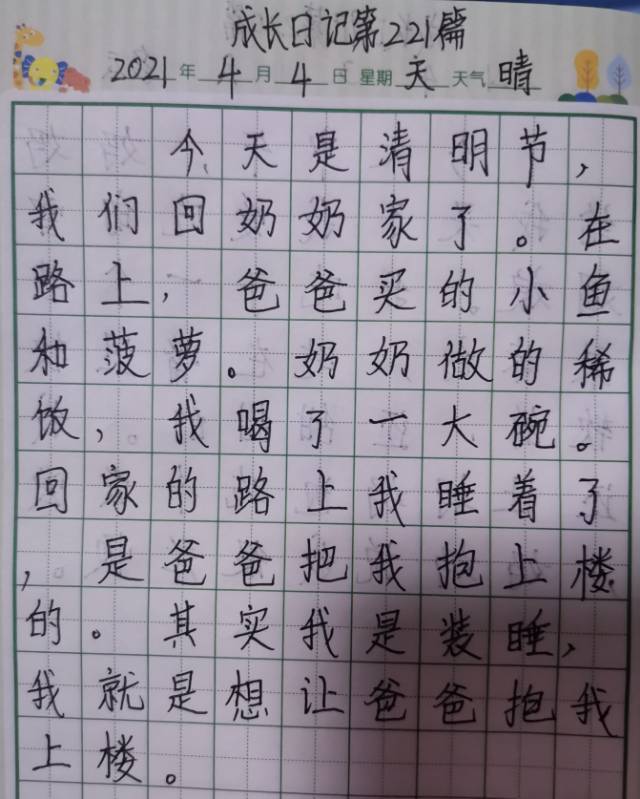 成长日记第221篇
2021年4月4日 星期天 天气晴
今天是清明节，
我们回奶奶家了。在
路上，爸爸买的小鱼
和菠萝。奶奶做的稀
饭，我喝了一大碗。
回家的路上我睡着了
，是爸爸把我抱上楼
的。其实我是装睡，
我就是想让爸爸抱我
上楼。